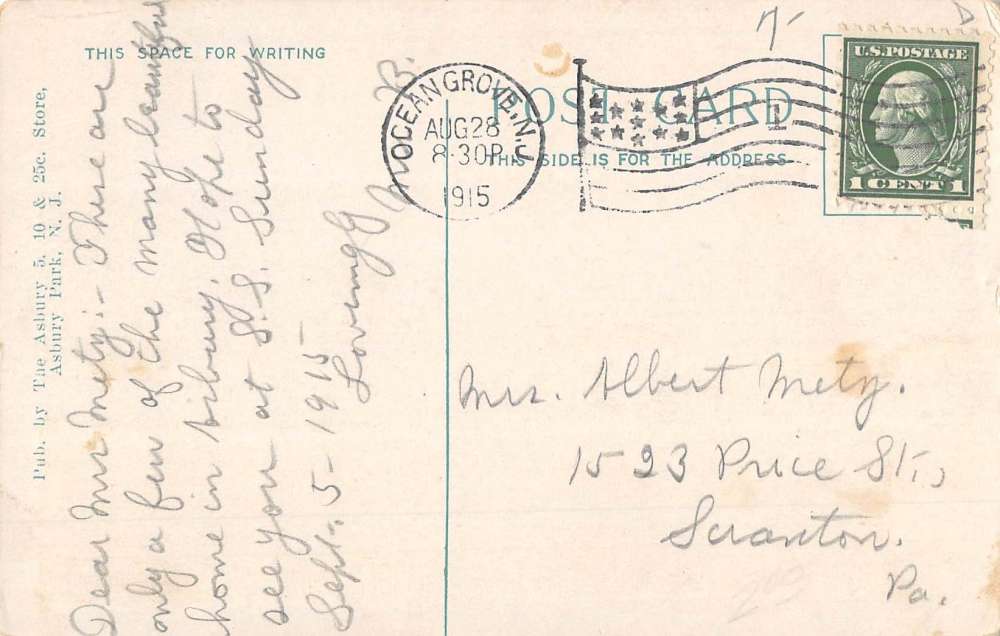 THIS SPACE FOR WRITING
Pub. by The Asbury 5, 10 & 25c. Store,
Asbury Park, N. J.
Dear Mrs Metz:- These are
only a few of the many beautiful
home in Asbury. Hope to
see you at S.S. Sunday
Sept. 5- 1915
Lovingly
M B.
OCEAN GROVE, N.J.
AUG 28
8-30P
1915
POST CARD
THIS SIDE IS FOR THE ADDRESS
1
U.S. POSTAGE
1 CENT 1
Mrs. Albert Metz.
1523 Price St.,
Scranton.
Pa.